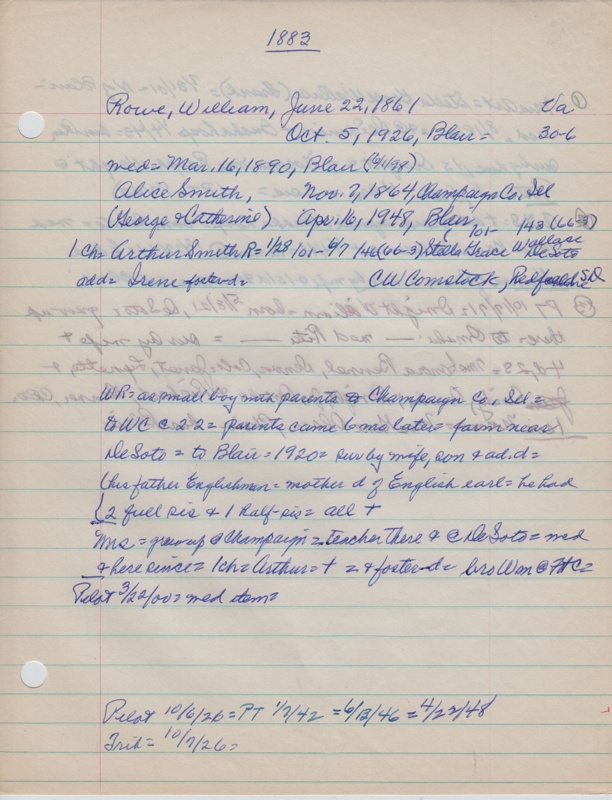 1883
Rowe, William, June 22, 1861 t/a
Oct. 5, 1926, Blair= 30-6
med= Mar. 16, 1890, Blair
Alice Smith, = Nov. 2, 1864, Champaign Co, Ill
(George & Catherine) Apr. 16, 1948, Blair,
1 ch= Arthur Smith R= 1/28/01- 6/7/46 (66-3) Stella Grace Wallace DeSoto
add= Irene foster-d= CW Comstock, S.D
WR= as small boy with parents to Champaign Co, Ill=
to WC @ 22= parents came 6 mo later= farm near
DeSoto = to Blair= 1920= sur by wife, son & ad. d=
(his father Englishman= mother d of English earl= he had
2 full sis & 1 half-sis= all +
Mrs= grew up @ Champaign= teacher there & @ DeSoto= med
& here since= 1ch= Arthur= + = & foster-d= bro Wm @ =
Pilot 3/22/00= med item=
Pilot 10/6/26= PT 1/7/42 = 6/13/46 = 4/22/48
Trib= 10/7/26=